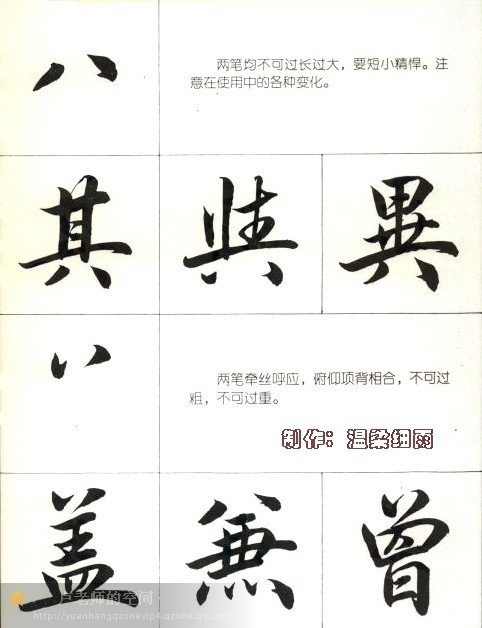 八
两笔均不可过长过大，要短小精悍。注
意在使用中的各种变化。
其 典 異
丷
两笔牵丝呼应，俯仰项背相合，不可过
粗，不可过重。
制作：温柔细雨
盖 兼 曾
卢老师的空间
http://yuanhangqzonevip4.qzone.qq.com